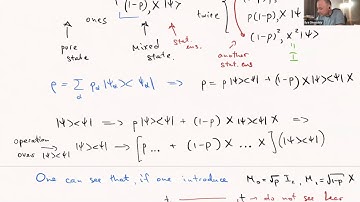 ones (1-p), X|ψ>
twice p(1-p), X|ψ
(1-p)², X²|ψ>
= I
pure state
Mixed state
stat. ens.
another stat. ens
ρ = ∑ pα |ψα><ψα| => ρ = p|ψ><ψ| + (1-p) X |ψ><ψ| X
α
|ψ><ψ| => p|ψ><ψ| + (1-p) X |ψ><ψ| X
operation over |ψ><ψ| |ψ><ψ| -> [p ... + (1-p) X ... X] (|ψ><ψ|)
One can see that, if one introduce M₀=√p I, M₁=√1-p X
do not see